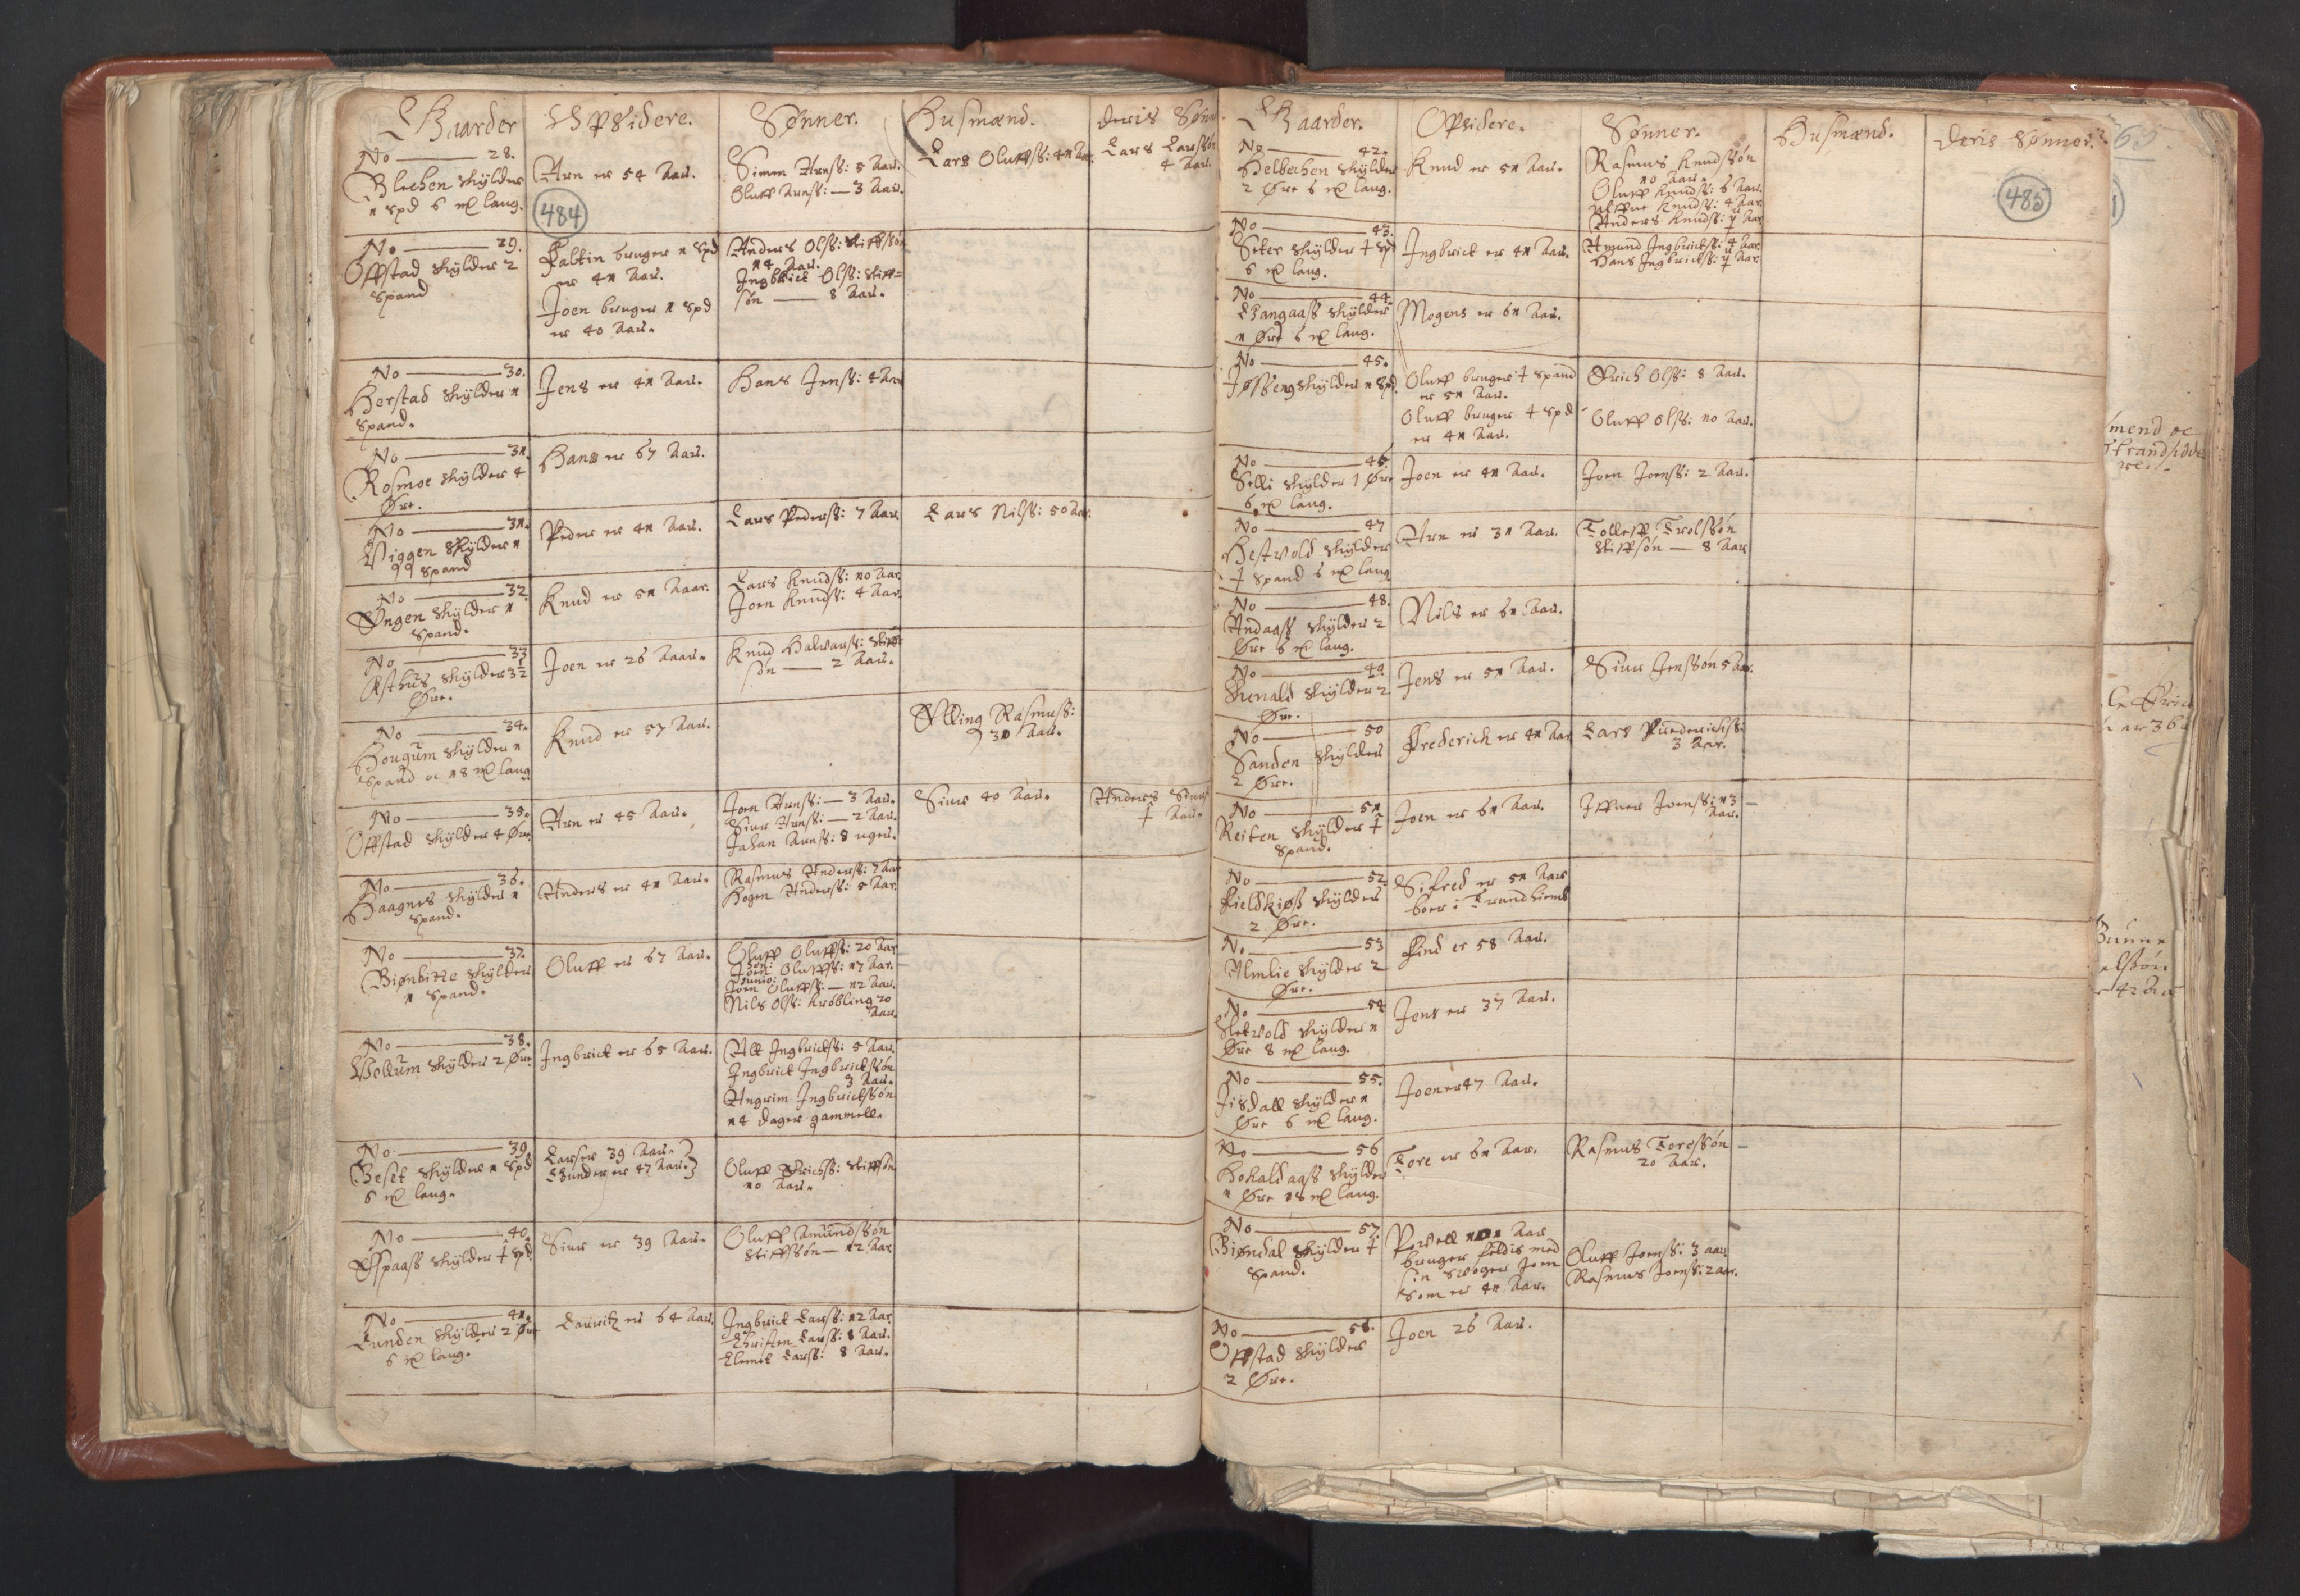 Gaarder
Opsidere.
Sønner.
Husmænd.
deris Sønn
No 28.
Blechen skylder
1 spd 6 mk laug.
Arn er 54 Aar.
484
Simen Arnss: 5 Aar.
Oluff Arnss: 3 Aar.
Lars Oluffss: 41 Aar
Lars Larssøn
4 Aar.
No 29.
Offstad skylder 2
spand
Faltin bruger 1 spd
er 41 Aar.
Joen bruger 1 spd
er 40 Aar.
Anders Olss: stifssøn
14 Aar.
Ingbrict Olss: stiff=
søn 8 Aar.
No 30.
Herstad skylder 1
spand.
Jens er 41 Aar.
Hans Jenss: 4 Aar
No 31.
Rosmoe skylder 4
Øre.
Hans er 67 Aar.
No 31.
Viggen skylder 1
spand
Peder er 41 Aar.
Lars Pederss: 7 Aar
Lars Nilss: 50 Aar.
No 32.
Øngen skylder 1
spand.
Knud er 51 Aaar.
Lars Knudss: 10 Aar.
Joen Knudss: 4 Aar.
No 33
Østhus skylder 3½
Øre.
Joen er 26 Aaar.
Knud Halvarss: stif
søn 2 Aar.
No 34.
Hougum skylder 1
spand oc 18 mk laug
Knud er 57 Aar.
Elling Rasmuss:
30 Aar.
No 35.
Offstad skylder 4 Øre
Arn er 45 Aar.
Joen Arnss: 3 Aar.
Siur Arnss: 2 Aar.
Johan Arnss: 8 uger.
Siur 40 Aar.
Anders Siurs
Aar.
No 36.
Haagnes skylder 1
spand.
Anders er 41 Aar.
Rasmus Anderss: 7 Aar
Hogen Anderss: 5 Aar.
No 37.
Biønbitte skylder
1 spand.
Oluff er 67 Aar.
Oluff Oluffss: 20 Aar
Joen Oluffss: 17 Aar.
Joen Oluffss: 12 Aar.
Nils Olss: Krøbling 20
Aar.
No 38.
Vollum skylder 2 Øre
Ingbrict er 65 Aar.
Alt Ingbrictss: 5 Aar.
Ingbrict Ingbrictssøn
3 Aar.
Angrim Ingbrictssøn
14 dager gammell.
No 39
Beset skylder 1 spd
6 mk laug.
Lars er 39 Aar.
Gunder er 47 Aar.
Oluff Erichss: stiffsøn
10 Aar.
No 40.
Espaass skylder spd.
Siur er 39 Aar.
Oluff Amundssøn
stiffssøn 12 Aar
No 41.
Lunden skylder 2 Øre
6 mk laug.
Lauritz er 64 Aar.
Ingbrict Larss: 12 Aar
Christen Larss: 8 Aar.
Clemit Larss: 8 Aar.
Gaarder.
Opsidere.
Sønner.
Husmænd.
Deris Sønner.
485
No 42.
Helbechen skylder
2 Øre 6 mk laug.
Knud er 51 Aar.
Rasmus Knudssøn
10 Aar.
Oluff Knudss: 6 Aar.
Knudss: 4 Aar
Anders Knudss: Aar
No 43.
Seter skylder spd
6 mk laug.
Ingbrict er 41 Aar.
Amund Ingbrictss: 4 Aar.
Hans Ingbrictss: Aar.
No 44
Langaass skylder
1 Øre 6 mk laug.
Mogens er 61 Aar.
No 45.
Jøsseng skylder 1 spd.
Oluff bruger spand
er 51 Aar.
Oluff bruger spd
er 41 Aar.
Erich Olss: 8 Aar.
Oluff Olss: 10 Aar.
No 46.
Selli skylder 1 Øre
6 mk laug.
Joen er 41 Aar.
Joen Joenss: 2 Aar.
No 47
Hestvold skylder
spand 6 mk laug
Arn er 31 Aar.
Tolleff Trolssøn
stiffsøn 8 Aar
No 48.
Andaass skylder 2
Øre 6 mk laug.
Nils er 61 Aar.
No 49.
skylder 2
Øre.
Jens er 51 Aar.
Siur Jenssøn 5 Aar.
No 50
Sanden skylder
2 Øre.
Frederich er 41 Aar
Lars Frederichss:
3 Aar.
No 51
Reiten skylder
spand.
Joen er 61 Aar.
Iffuer Joenss: 13
Aar.
No 52
Fieldkiøss skylder
2 Øre.
Sifred er 51 Aar
boer i Trundhiemb
No 53
Almlie skylder 2
Øre.
Find er 58 Aar.
No 54
Sletvold skylder 1
Øre 8 mk laug.
Jens er 37 Aar.
No 55.
Jisdall skylder 1
Øre 6 mk laug.
Joen er 47 Aar.
No 56
Hokaldaass skylder
1 Øre 18 mk laug.
Tore er 61 Aar.
Rasmus Toressøn
20 Aar.
No 57.
Biøndal skylder
spand.
Povell 101 Aar
bruger feldis med
sin svoger Joen
som er 41 Aar.
Oluff Joenss: 3 aar
Rasmus Joenss: 2 aar.
No 58.
Offstad skylder
2 Øre.
Joen 26 Aar.
mend oc
Strandsidde